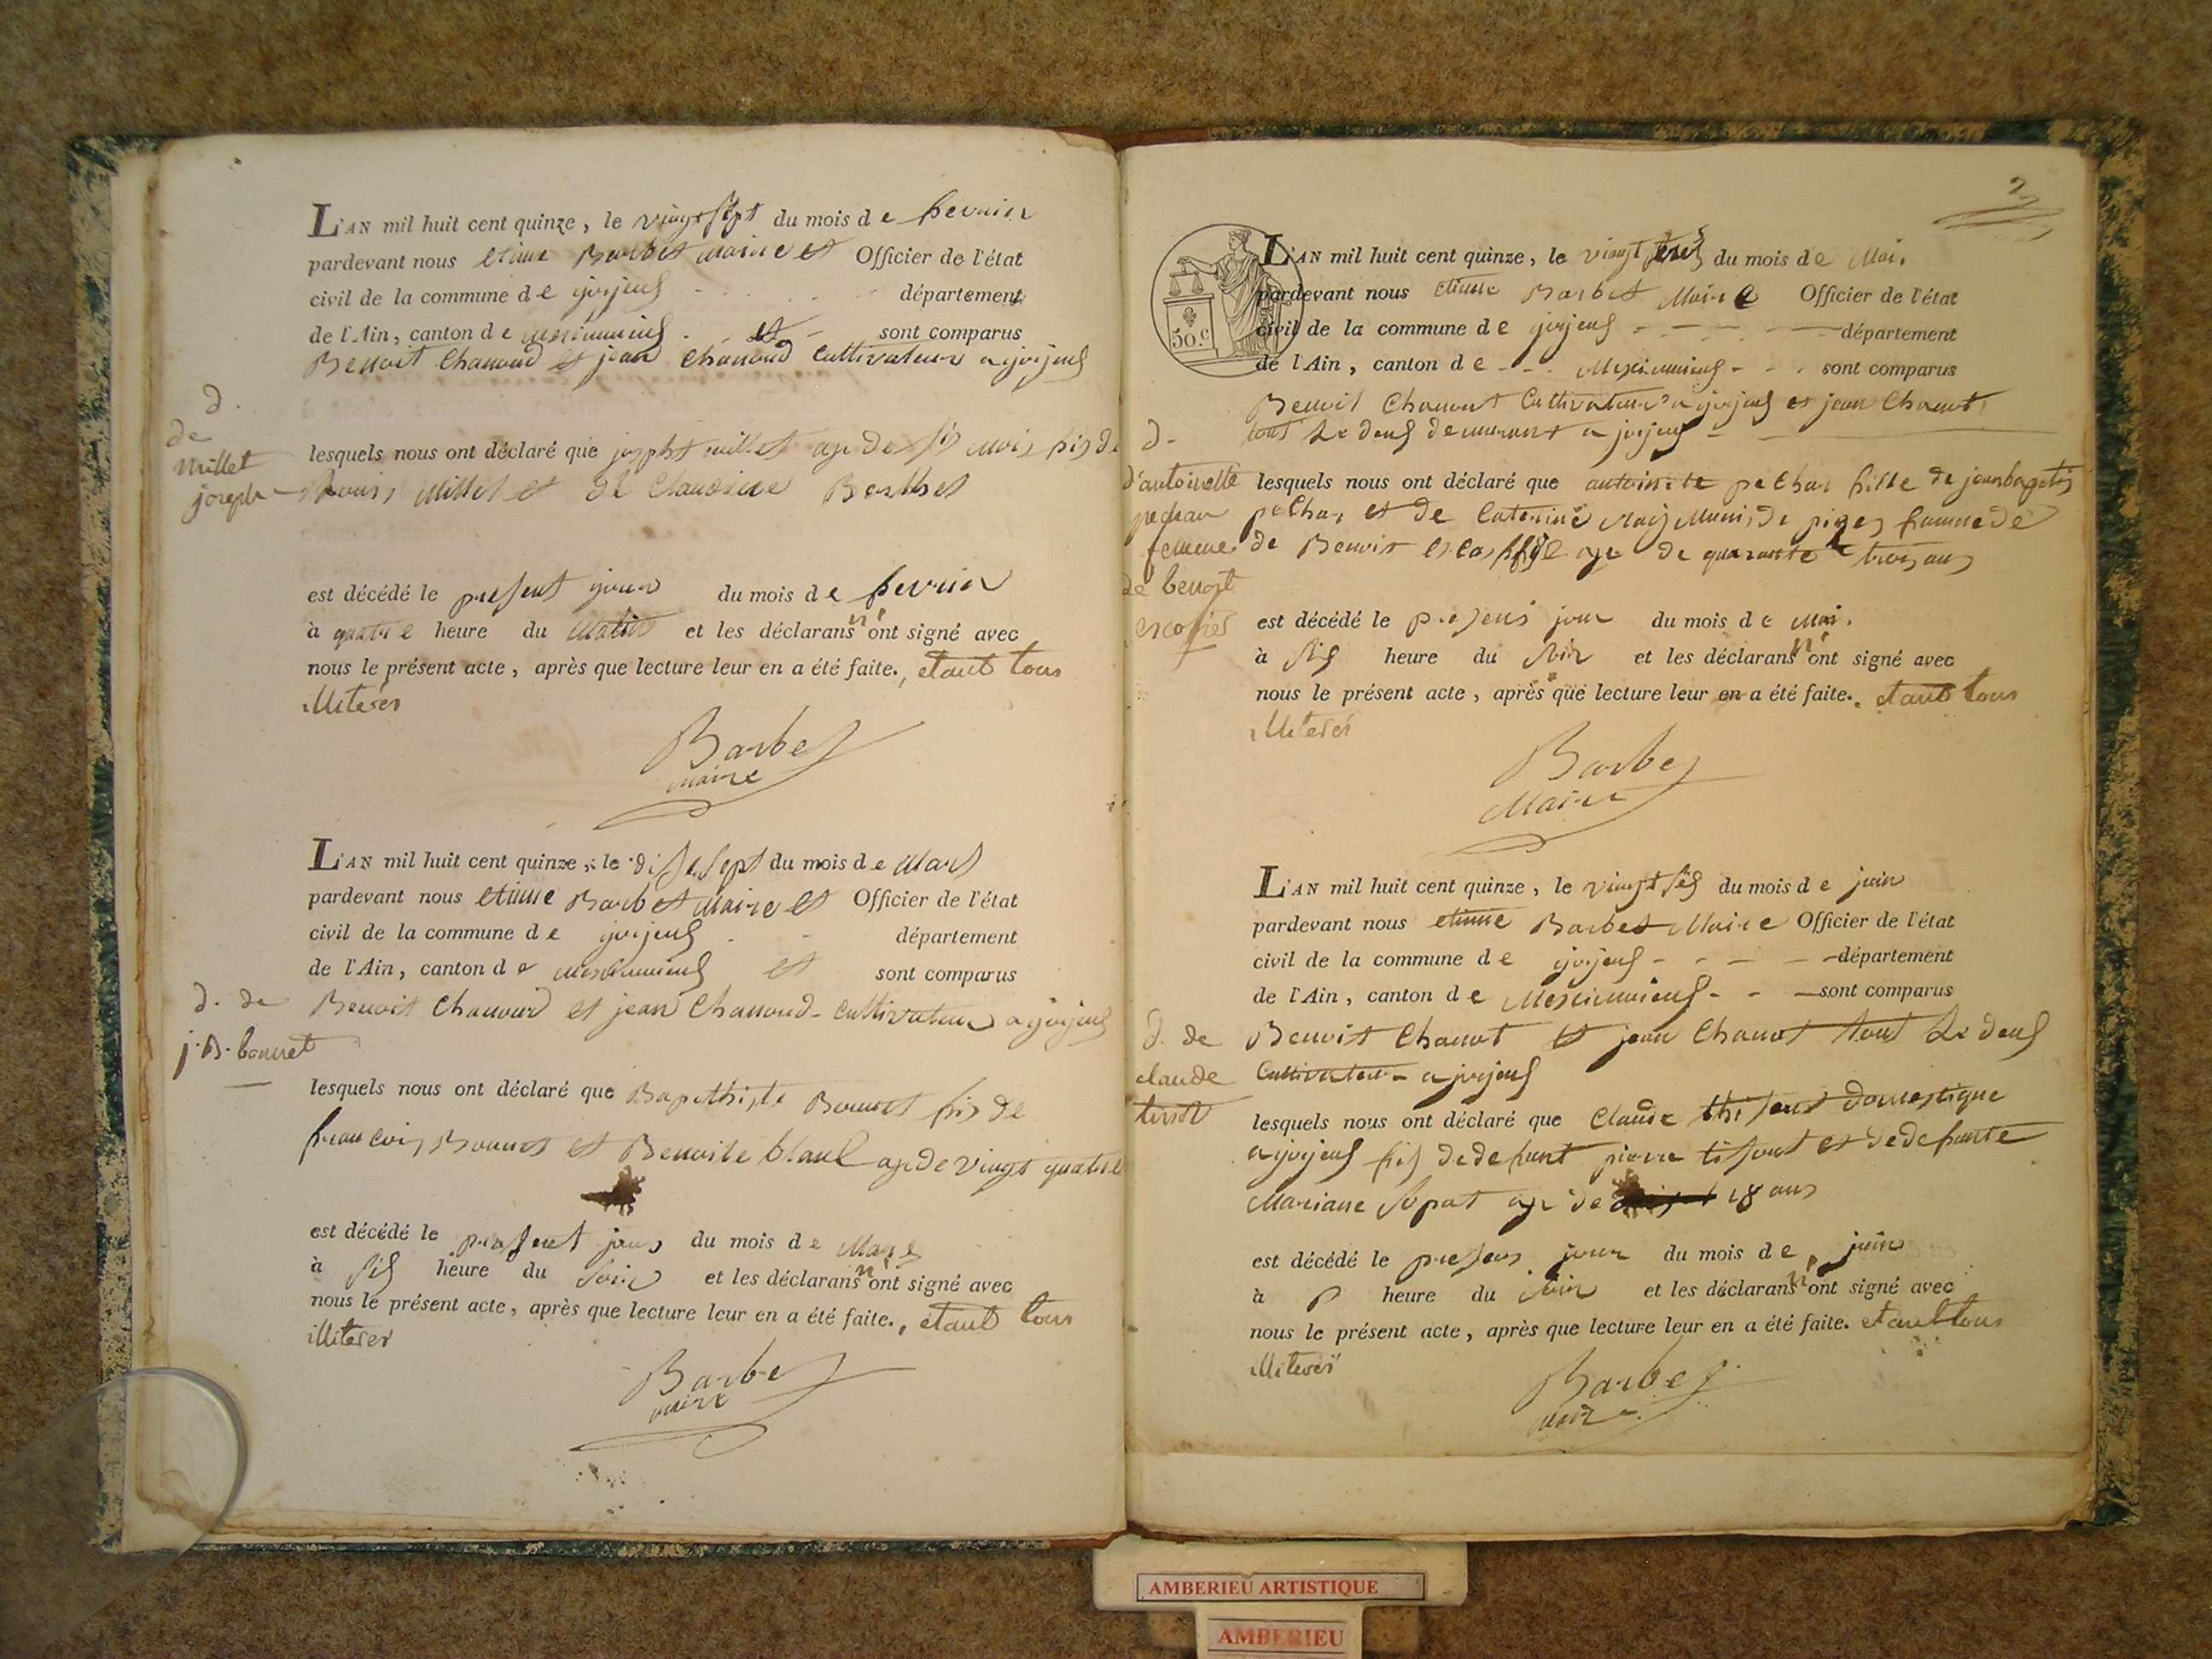 L'AN mil huit cent quinze, le vingt sept du mois de fevrier
pardevant nous etinne Barbet maire et Officier de l'état
civil de la commune de joyjeus département
de l'Ain, canton de meximieus et sont comparus
Benoit Chanoud et jean Chanoud Cultivateur a joyjeus
d.
de
millet
joseph
lesquels nous ont déclaré que josepht millet age de sis mois fis de
Louis Millet et de Claudine Berthet
est décédé le present jour du mois de fevrier
à quatre heure du Matin et les déclarans n'ont signé avec
nous le présent acte, après que lecture leur en a été faite., etant tous
illiterés
Barbet
maire
L'AN mil huit cent quinze, le dissesept du mois de Mars
pardevant nous etinne Barbet Maire et Officier de l'état
civil de la commune de joyjeus département
de l'Ain, canton de et sont comparus
d. de
j. B. bonnet
Benoit Chanoud et jean Chanoud Cultivateur a joyjeus
lesquels nous ont déclaré que Bapthiste Bonnet fis de
francois Bonnet et Benoite blanc age de vingt quatre
est décédé le present jour du mois de Mars
à sis heure du soir et les déclarans n'ont signé avec
nous le présent acte, après que lecture leur en a été faite., etant tous
illiterés
Barbet
maire
3
50.c
L'AN mil huit cent quinze, le vingt du mois de Mai.
pardevant nous etinne Barbet Maire Officier de l'état
civil de la commune de joyjeus département
de l'Ain, canton de Meximieus sont comparus
Benoit Chanout Cultivateur a joyjeus et jean Chanot
tout Le deus demurant a joyjeus
d.
d'antoinette
pechar
femme
de benoit
escofier
lesquels nous ont déclaré que antoinete pechar fille de
pechar et de Caterine famme de
de Benoit age de quarante trois ans
est décédé le present jour du mois de Mai.
à sis heure du soir et les déclarans n'ont signé avec
nous le présent acte, après que lecture leur en a été faite. etant tous
illiterés
Barbet
Maire
L'AN mil huit cent quinze, le vingt sis du mois de juin
pardevant nous etinne Barbet Maire Officier de l'état
civil de la commune de joyjeus département
de l'Ain, canton de Meximieus sont comparus
D. de
claude
tissot
Benoit Chanot et jean Chanot tout Le deus
Cultivateur a joyjeus
lesquels nous ont déclaré que Claude thisout domestique
a joyjeus fis de defunt pierre tisout et de defunte
Mariane age de 18 ans
est décédé le present jour du mois de juin
à heure du soir et les déclarans n'ont signé avec
nous le présent acte, après que lecture leur en a été faite. etant tous
illiterés
Barbet
maire
AMBERIEU ARTISTIQUE
AMBERIEU